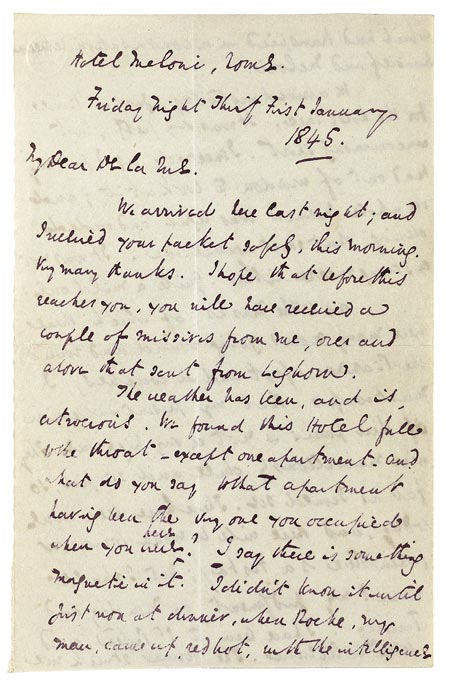 Hotel Meloni, Rome.
Friday Night Thirty First January
1845.
My Dear De La Rue.
We arrived here last night; and
I received your packet safely, this morning.
Very many thanks. I hope that before this
reaches you, you will have received a
couple of missives from me, over and
above that sent from Leghorn.
The weather has been, and is,
atrocious. We found this Hotel full
to the throat - except one apartment. and
what do you say to that apartment
having been the very one you occupied
when you were here? I say there is something
Magnetic in it. I didn't know it until
just now at dinner, when Roche, my
man, came up, red hot, with the intelligence